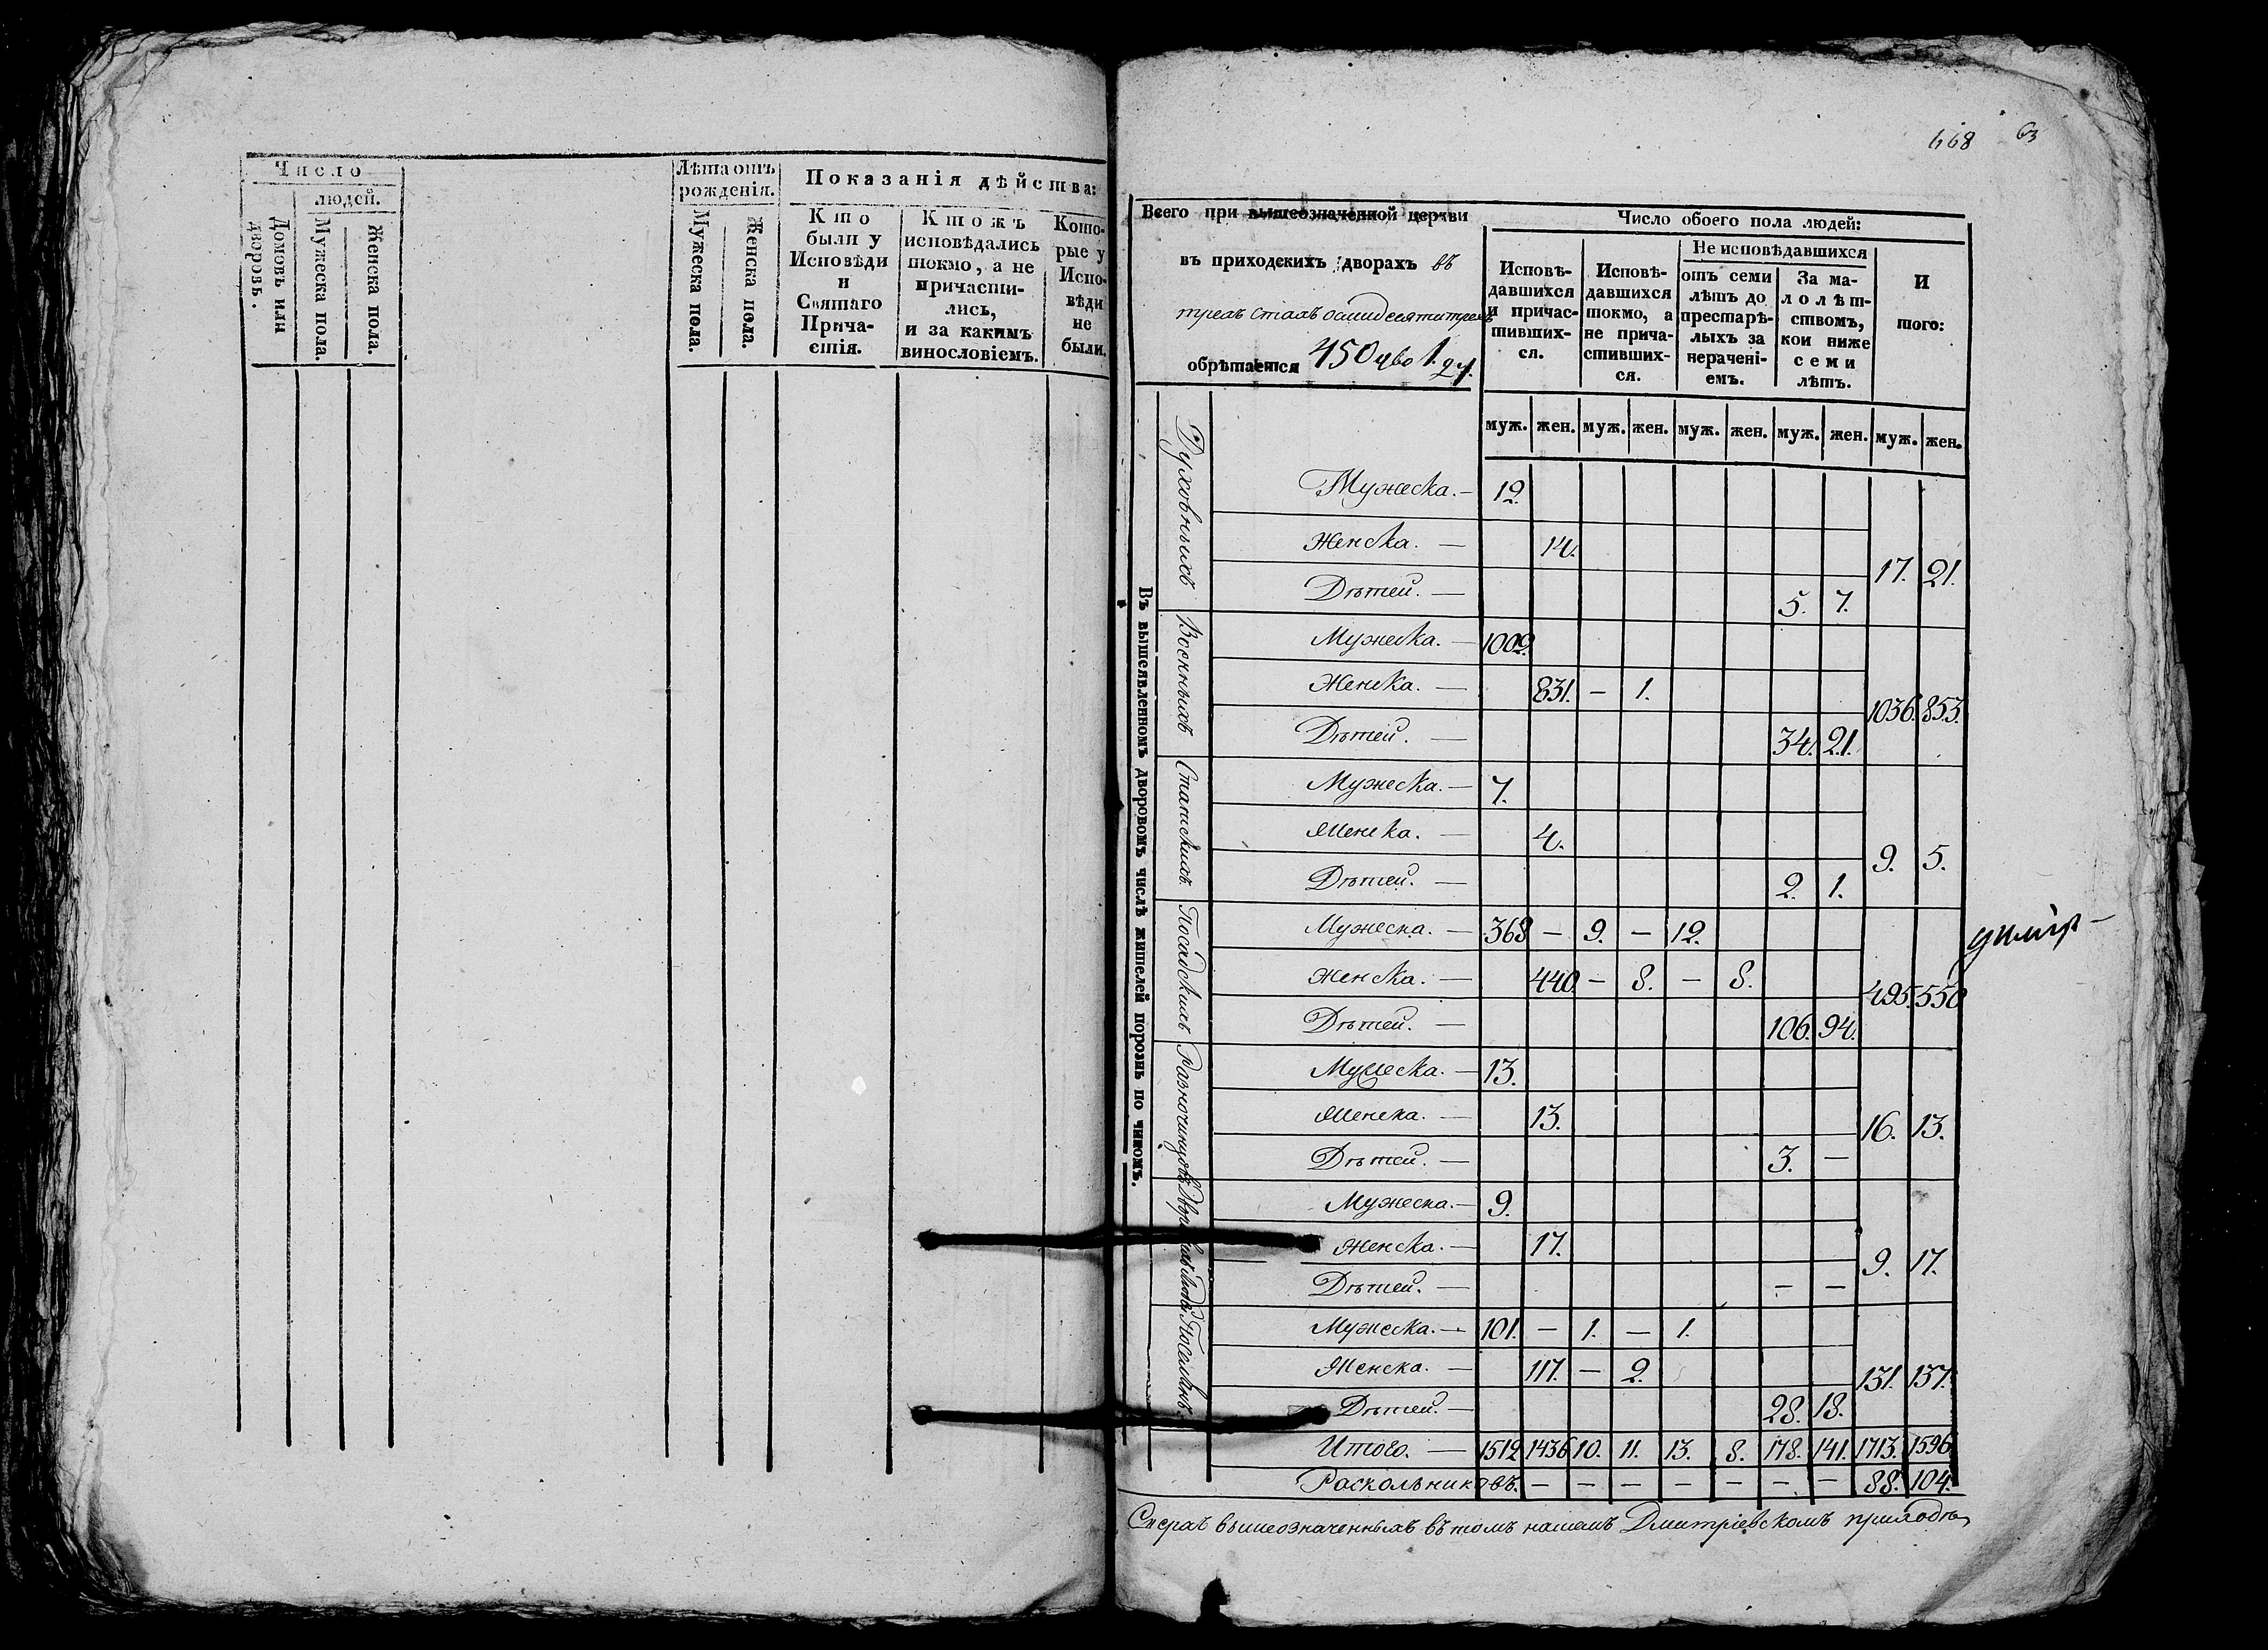 Число
людей.
Домовъ или дворовъ.
Мужеска пола.
Женска пола.
Лѣта отъ рожденія.
Мужеска пола.
Женска пола.
Показанія дѣйства:
Кто
были у
Исповѣди
и
Святаго
Прича-
стія.
Кто жъ
исповѣдались
токмо, а не
причасти-
лись,
и за какимъ
винословіемъ.
Кото-
рые у
Испо-
вѣди
не
были.
668 63
Всего при вышеозначенной церкви
въ приходскихъ дворахъ въ
трехъ стахъ осмидесяти трехъ
обрѣтается 450
Число обоего пола людей:
Исповѣ-
давшихся
и причас-
тивших-
ся.
Исповѣ-
давшихся
токмо, а
не прича-
стивших-
ся.
Не исповѣдавшихся
отъ семи
лѣтъ до
престарѣ-
лыхъ за
нерачені-
емъ.
За ма-
лолѣт-
ствомъ,
кои ниже
семи
лѣтъ.
И
того:
муж. жен. муж. жен. муж. жен. муж. жен. муж. жен.
Въ вышеявленномъ дворовомъ числѣ жителей порознь по чиномъ.
Духовныхъ
Мужеска. — 12.
Женска. — 14.
Дѣтей. — 5. 7.
17. 21.
Военныхъ
Мужеска. — 1002.
Женска. — 831. — 1.
Дѣтей. — 34. 21.
1036. 853.
Статскихъ
Мужеска. — 7.
Женска. — 4.
Дѣтей. — 2. 1.
9. 5.
Посадскихъ
Мужеска. — 368 — 9. — 12.
Женска. — 440 — 8. — 8.
Дѣтей. — 106. 94.
495. 550
Разночинцовъ
Мужеска. — 13.
Женска. — 13.
Дѣтей. — 3. —
16. 13.
Мужеска. — 9.
Женска. — 17.
Дѣтей. — — —
9. 17.
Поселянъ.
Мужеска. — 101. — 1. — 1.
Женска. — 117. — 2.
Дѣтей. — 28. 18.
131. 137.
Итого. — 1512 1436 10. 11. 13. 8. 178. 141. 1713. 1596
Раскольниковъ. — — — — — — — 88. 104.
Сверхъ вышеозначенныхъ въ томъ нашемъ Дмитріевскомъ приходѣ